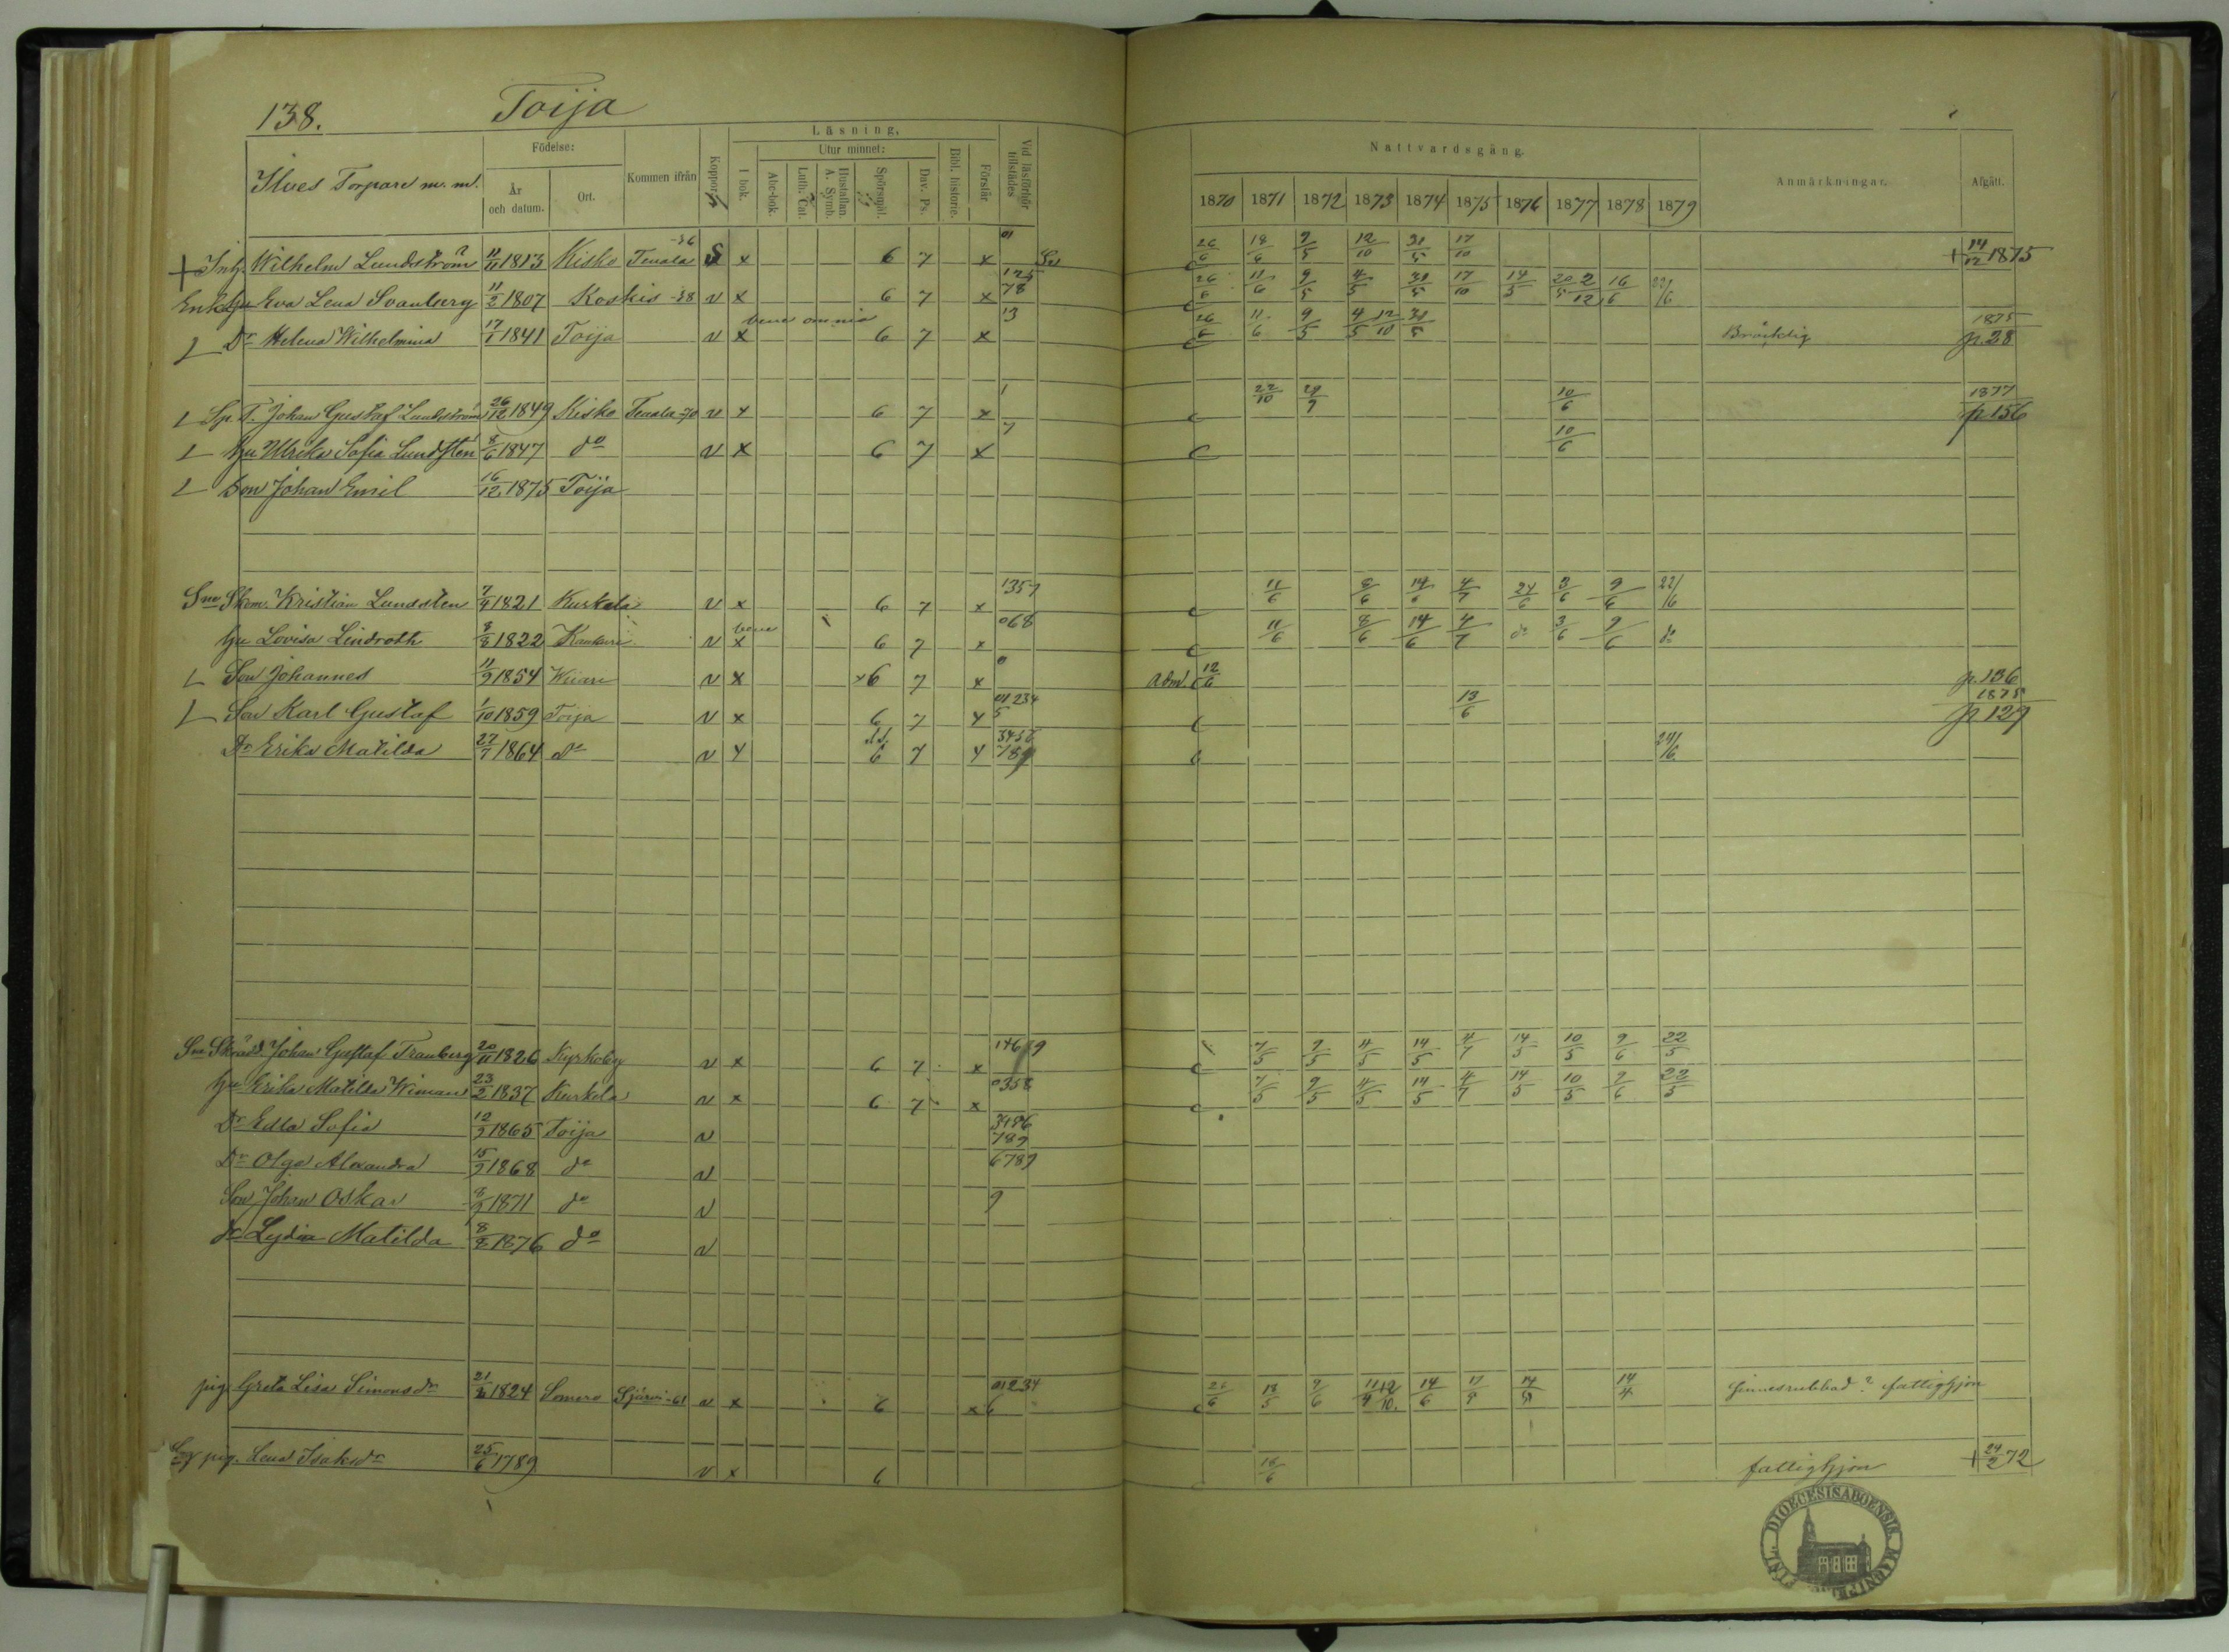 138. Toija
Läsning, Nattvardsgång.
Födelse: Utur minnet:
Ilves Torpare m. m. År och datum. Ort. Kommen ifrån Koppor I bok. Abc-bok. Luth. Cat. Hustaflan. A. Symb. Spörsmål. Dav. Ps. Bibl. historie. Förstår Vid läsförhör tillstädes 1870 1871 1872 1873 1874 1875 1876 1877 1878 1879 Anmärkningar. Afgått.
+ Inh. Wilhelm Lundström 11/11 1813 Kisko Tenala -36 x 6 7 x 01 26/6 18/6 9/5 12/10 31/5 17/10 + 14/12 1875
Enk. Hu Eva Lena Svanberg 11/2 1807 Koskis -38 v x 6 7 x 125 78 26/6 11/6 9/5 4/5 31/5 17/10 14/5 20/5 2/12 16/6 22/6
Dr Helena Wilhelmina 17/7 1841 Toija v x bene omnia 6 7 x 13 26/6 11/6 9/5 4/5 12/10 31/5 Bräcklig 1875 p. 28
Sp. T. Johan Gustaf Lundström 26/12 1849 Kisko Tenala -70 v x 6 7 x 1 22/10 29/9 10/6 1877 p. 156
Hu Ulrika Sofia Lundsten 8/6 1847 do v x 6 7 x 7 10/6
Son Johan Emil 16/12 1875 Toija
Sme Skom. Kristian Lundsten 7/9 1821 Kurkela v x 6 7 x 1357 11/6 8/6 14/6 4/7 24/6 3/6 9/6 22/6
Hu Lovisa Lindroth 8/8 1822 v x bene 6 7 x 068 11/6 8/6 14/6 4/7 do 3/6 9/6 do
Son Johannes 11/9 1854 Wiiari v x x6 7 x 0 Adm. 12/6 p. 136
Son Karl Gustaf 1/10 1859 Toija v x 6 7 x 01234 5 13/6 1875 p 129
Dr Erika Matilda 22/7 1864 do v x 6 7 x 3456 789 24/6
Sme Skrädd. Johan Gustaf Tranberg 20/11 1826 Kyrkoby v x 6 7 x 7/5 9/5 4/5 14/5 4/7 14/5 10/5 9/6 22/5
Hu Erika Matilda Wiman 23/2 1837 Kurkela v x 6 7 x 0358 7/5 9/5 4/5 14/5 4/7 14/5 10/5 9/6 22/5
Dr Edla Sofia 12/9 1865 Toija v 3486 789
Dr Olga Alexandra 15/9 1868 do v 6789
Son Johan Oskar 1871 do v 9
Dr Lydia Matilda 8/8 1876 do v
pig. Greta Lisa Simonsdr 1824 Somero Sjärvi -61 v x 6 x 01234 6 26/6 18/5 9/6 11/4 12/10 14/6 14/4 Sinnesrubbad? fattighjon
pig. Lena Isaksdr 25/6 1789 v x 6 16/6 fattighjon + 24/2 72
FINL. DIOECESIS ABOENSIS MAGNI PRINC.